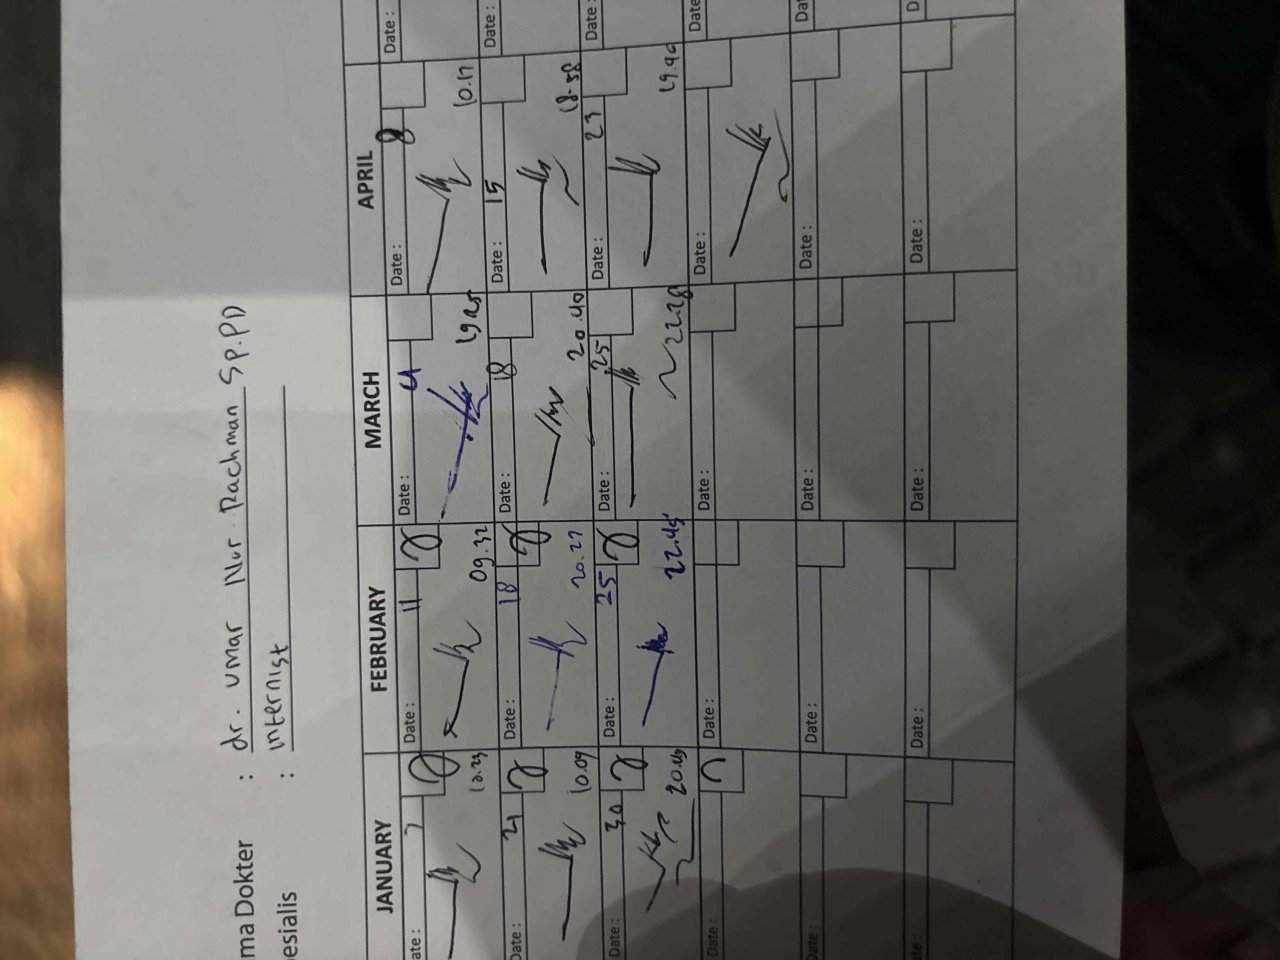 ma Dokter : dr. Umar Nur Rachman Sp.PD
esialis : internist
JANUARY FEBRUARY MARCH APRIL
ate: 7 Date: 11 Date: 4 Date: 8
10.23 09.32 10.17
Date: 21 Date: 18 Date: 18 Date: 15
10.09 20.27 20.40 18.58
Date: 30 Date: 25 Date: 25 Date: 23
22.45 22.28 19.40
Date: Date: Date: Date:
Date: Date: Date: Date:
ate: Date: Date: Date:
Date: Date: Date: Date: Dat D